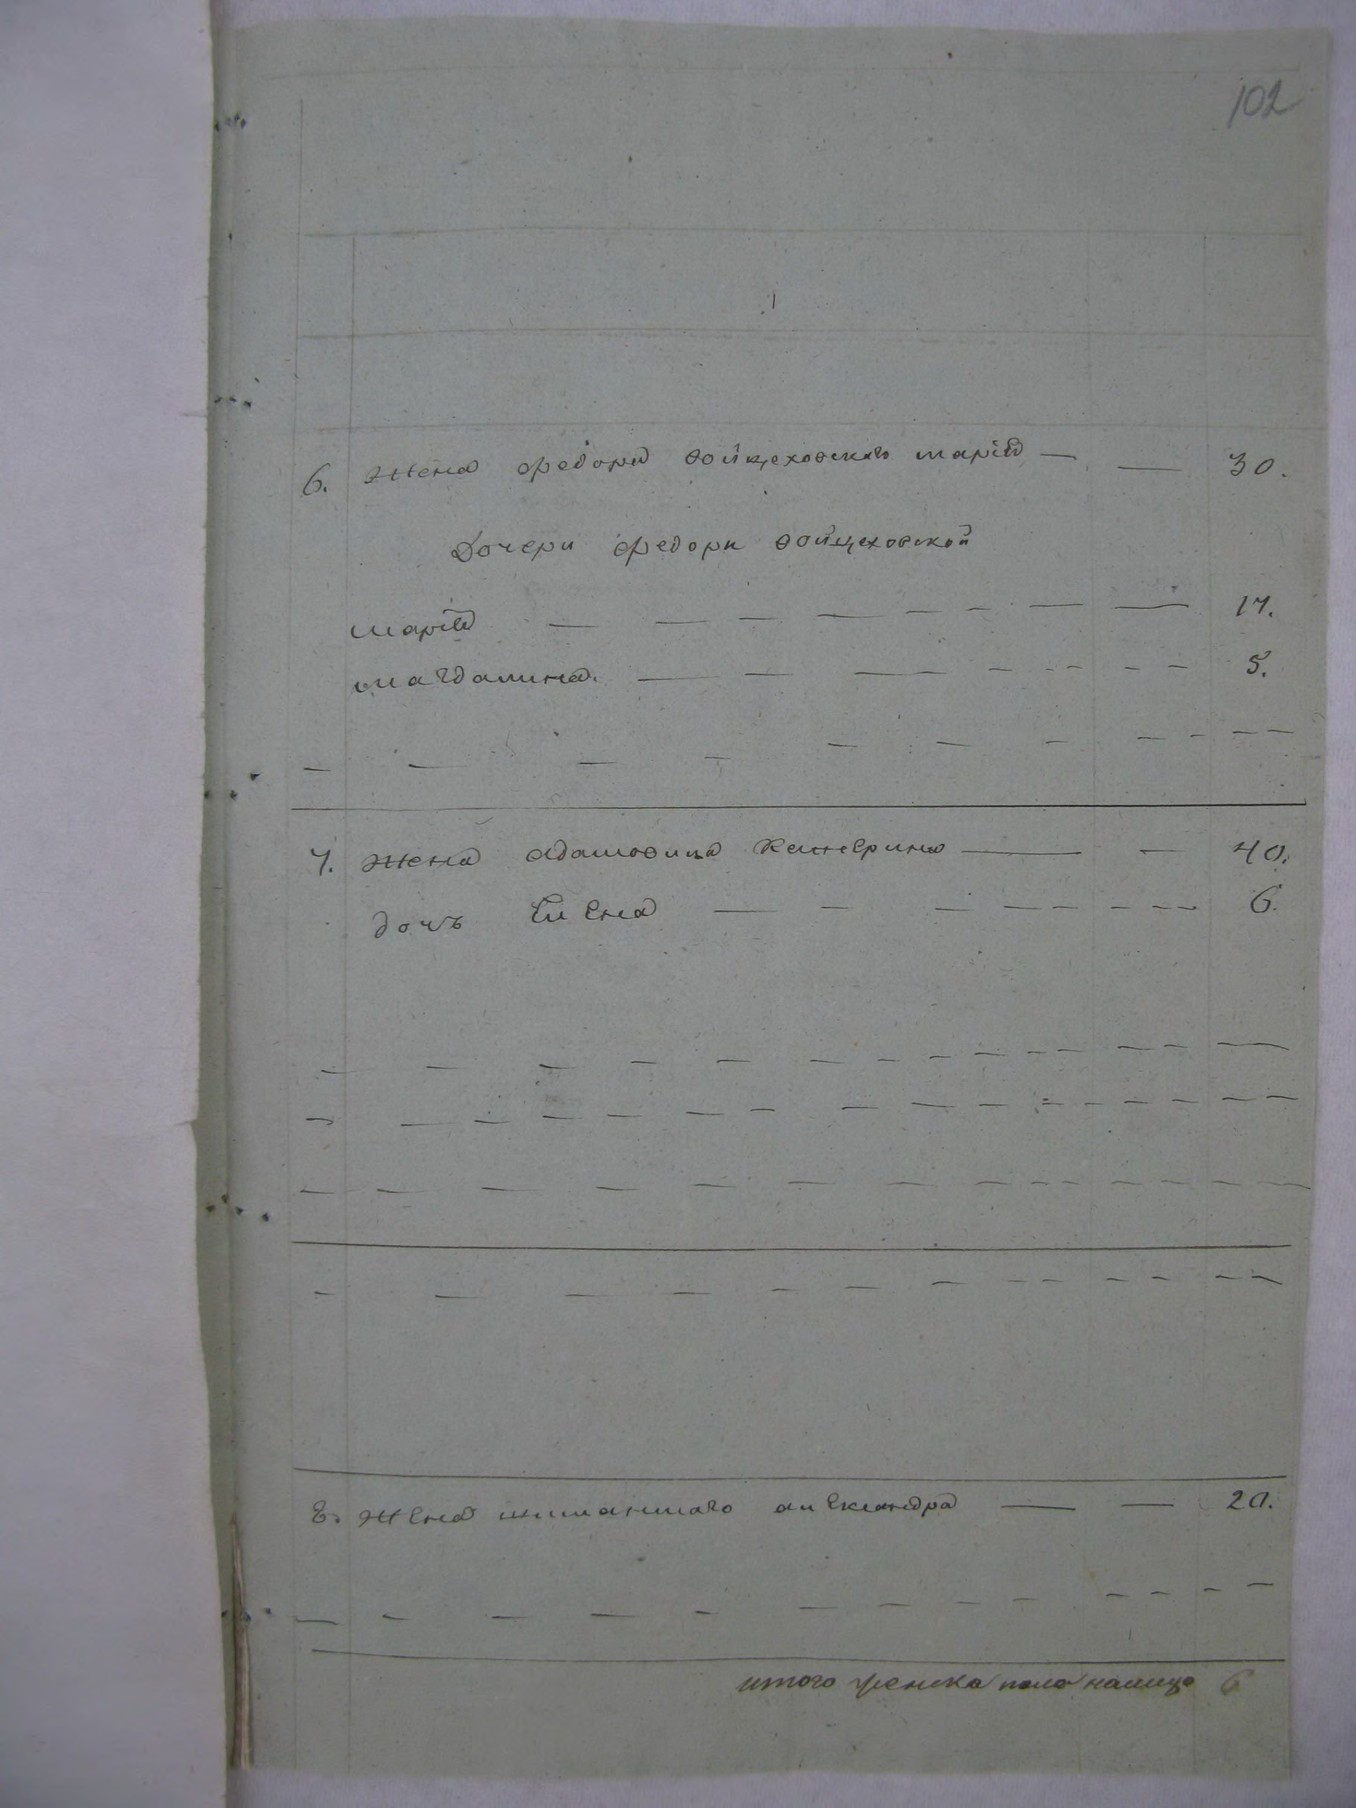 102
6. Жена федора войцеховского марія — — 30.
Дочери федори войцеховской
марія — — — — — — — — 17.
магдалина. — — — — — — — — 5.
7. жена адамовица катерина — — 40.
дочъ Елена — — — — — — — — 6.
8. жена александра — — 20.
итого женска пола налицо 6